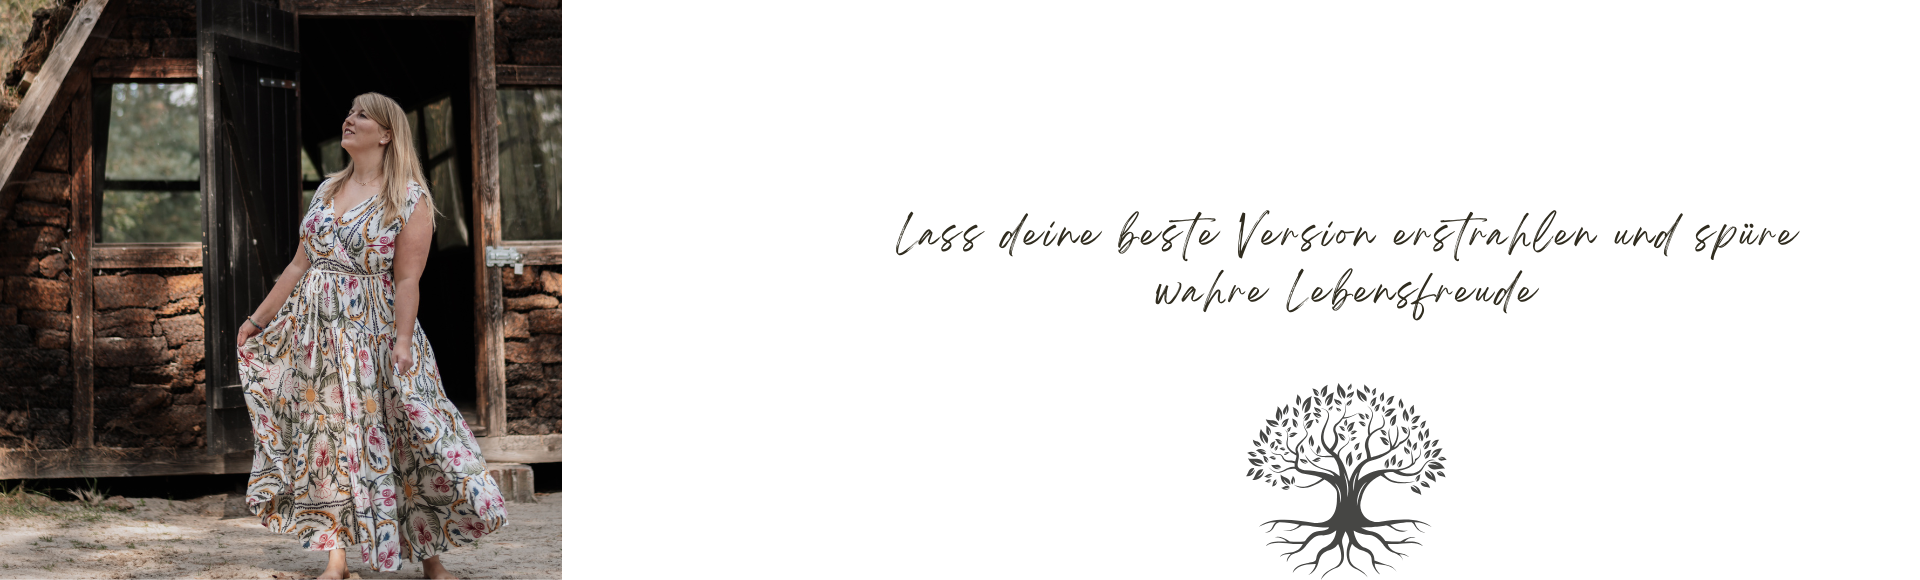 Lass deine beste Version erstrahlen und spüre
wahre Lebensfreude